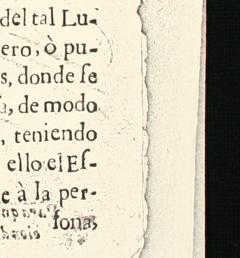 del tal Lu-
ero, ò pu-
s, donde ſe
, de modo
, teniendo
ello el Eſ-
e à la per-
ſonas